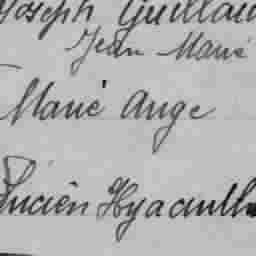 Joseph Guillau
Jean Marie
Marie Ange
Lucien Hyacinth